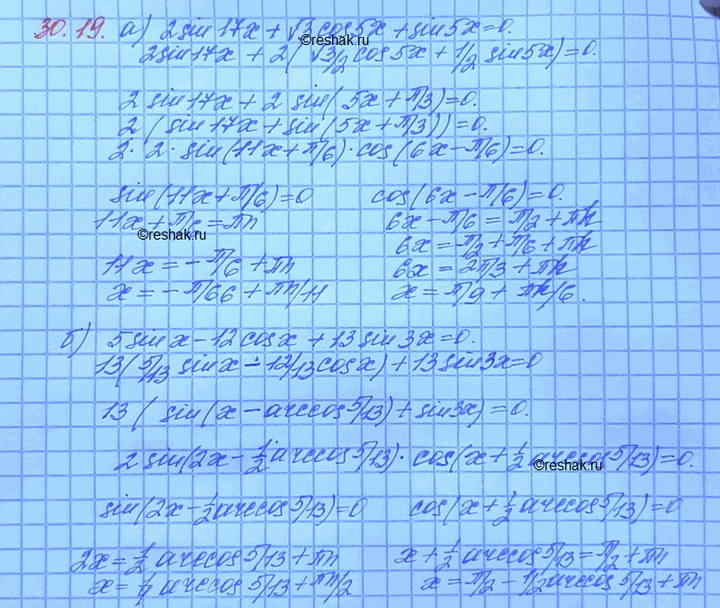 30.19. а) 2sin17x + √3cos5x + sin5x=0.
©reshak.ru
2sin17x + 2(√3/2 cos5x + 1/2 sin5x)=0.
2 sin17x + 2 sin(5x+π/3)=0.
2 (sin17x+sin(5x+π/3))=0.
2·2·sin(11x+π/6)·cos(6x-π/6)=0.
sin(11x+π/6)=0 cos(6x-π/6)=0.
11x+π/6=πn 6x-π/6=π/2+πk
©reshak.ru
6x=π/2+π/6+πk
11x=-π/6+πn 6x=2π/3+πk
x=-π/66+πn/11 x=π/9+πk/6.
б) 5sinx-12cosx+13sin3x=0.
13(5/13 sinx-12/13cosx)+13sin3x=0
13(sin(x-arccos5/13)+sin3x)=0.
2sin(2x-1/2arccos5/13)·cos(x+1/2arccos5/13)=0.
©reshak.ru
sin(2x-1/2arccos5/13)=0 cos(x+1/2arccos5/13)=0
2x=1/2arccos5/13+πn x+1/2arccos5/13=π/2+πn
x=1/4arccos5/13+πn/2 x=π/2-1/2arccos5/13+πn